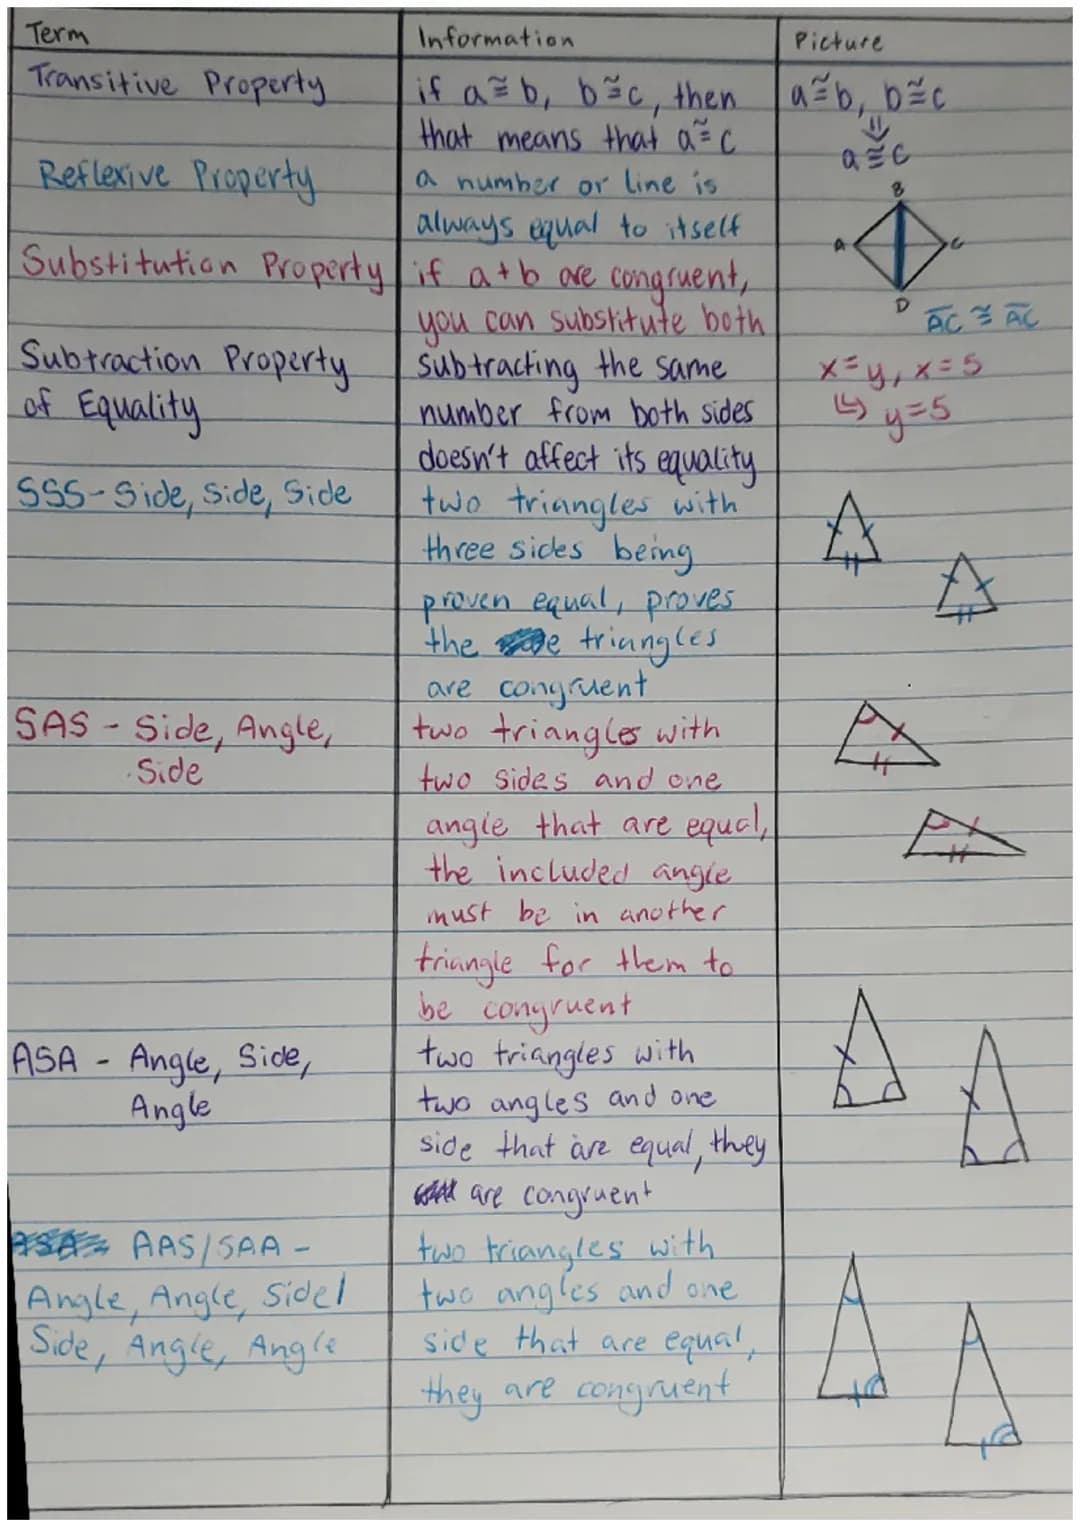 Term
Information
Picture
Transitive Property
if a ≅ b, b ≅ c, then
that means that a ≅ c
a ≅ b, b ≅ c
⇓
a ≅ c
Reflexive Property
a number or line is
always equal to itself
B
A
C
D
AC ≅ AC
Substitution Property
if a + b are congruent,
you can substitute both
x = y, x = 5
↳ y = 5
Subtraction Property
of Equality
subtracting the same
number from both sides
doesn't affect its equality
SSS - Side, Side, Side
two triangles with
three sides being
proven equal, proves
the triangles
are congruent
SAS - Side, Angle,
Side
two triangles with
two sides and one
angle that are equal,
the included angle
must be in another
triangle for them to
be congruent
ASA - Angle, Side,
Angle
two triangles with
two angles and one
side that are equal, they
are congruent
AAS/SAA -
Angle, Angle, Side/
Side, Angle, Angle
two triangles with
two angles and one
side that are equal,
they are congruent